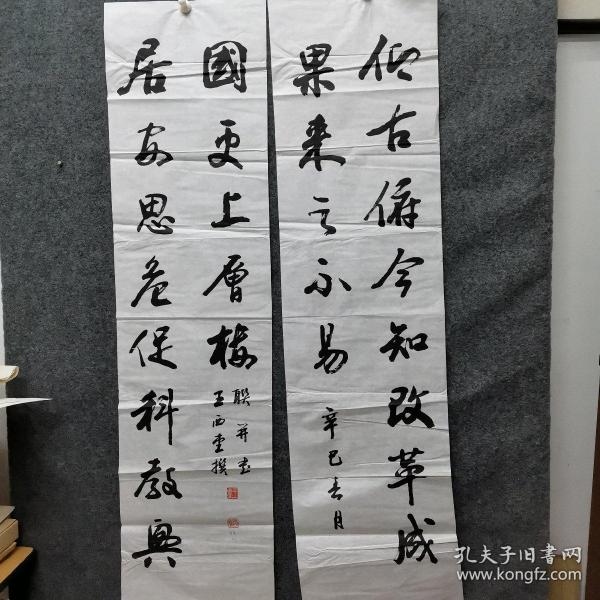 仰古俯今知改革成
果来之不易
辛巳春月
居安思危促科教興
國更上層樓
王西堂撰
聯并書
孔夫子旧书网
www.kongfz.com